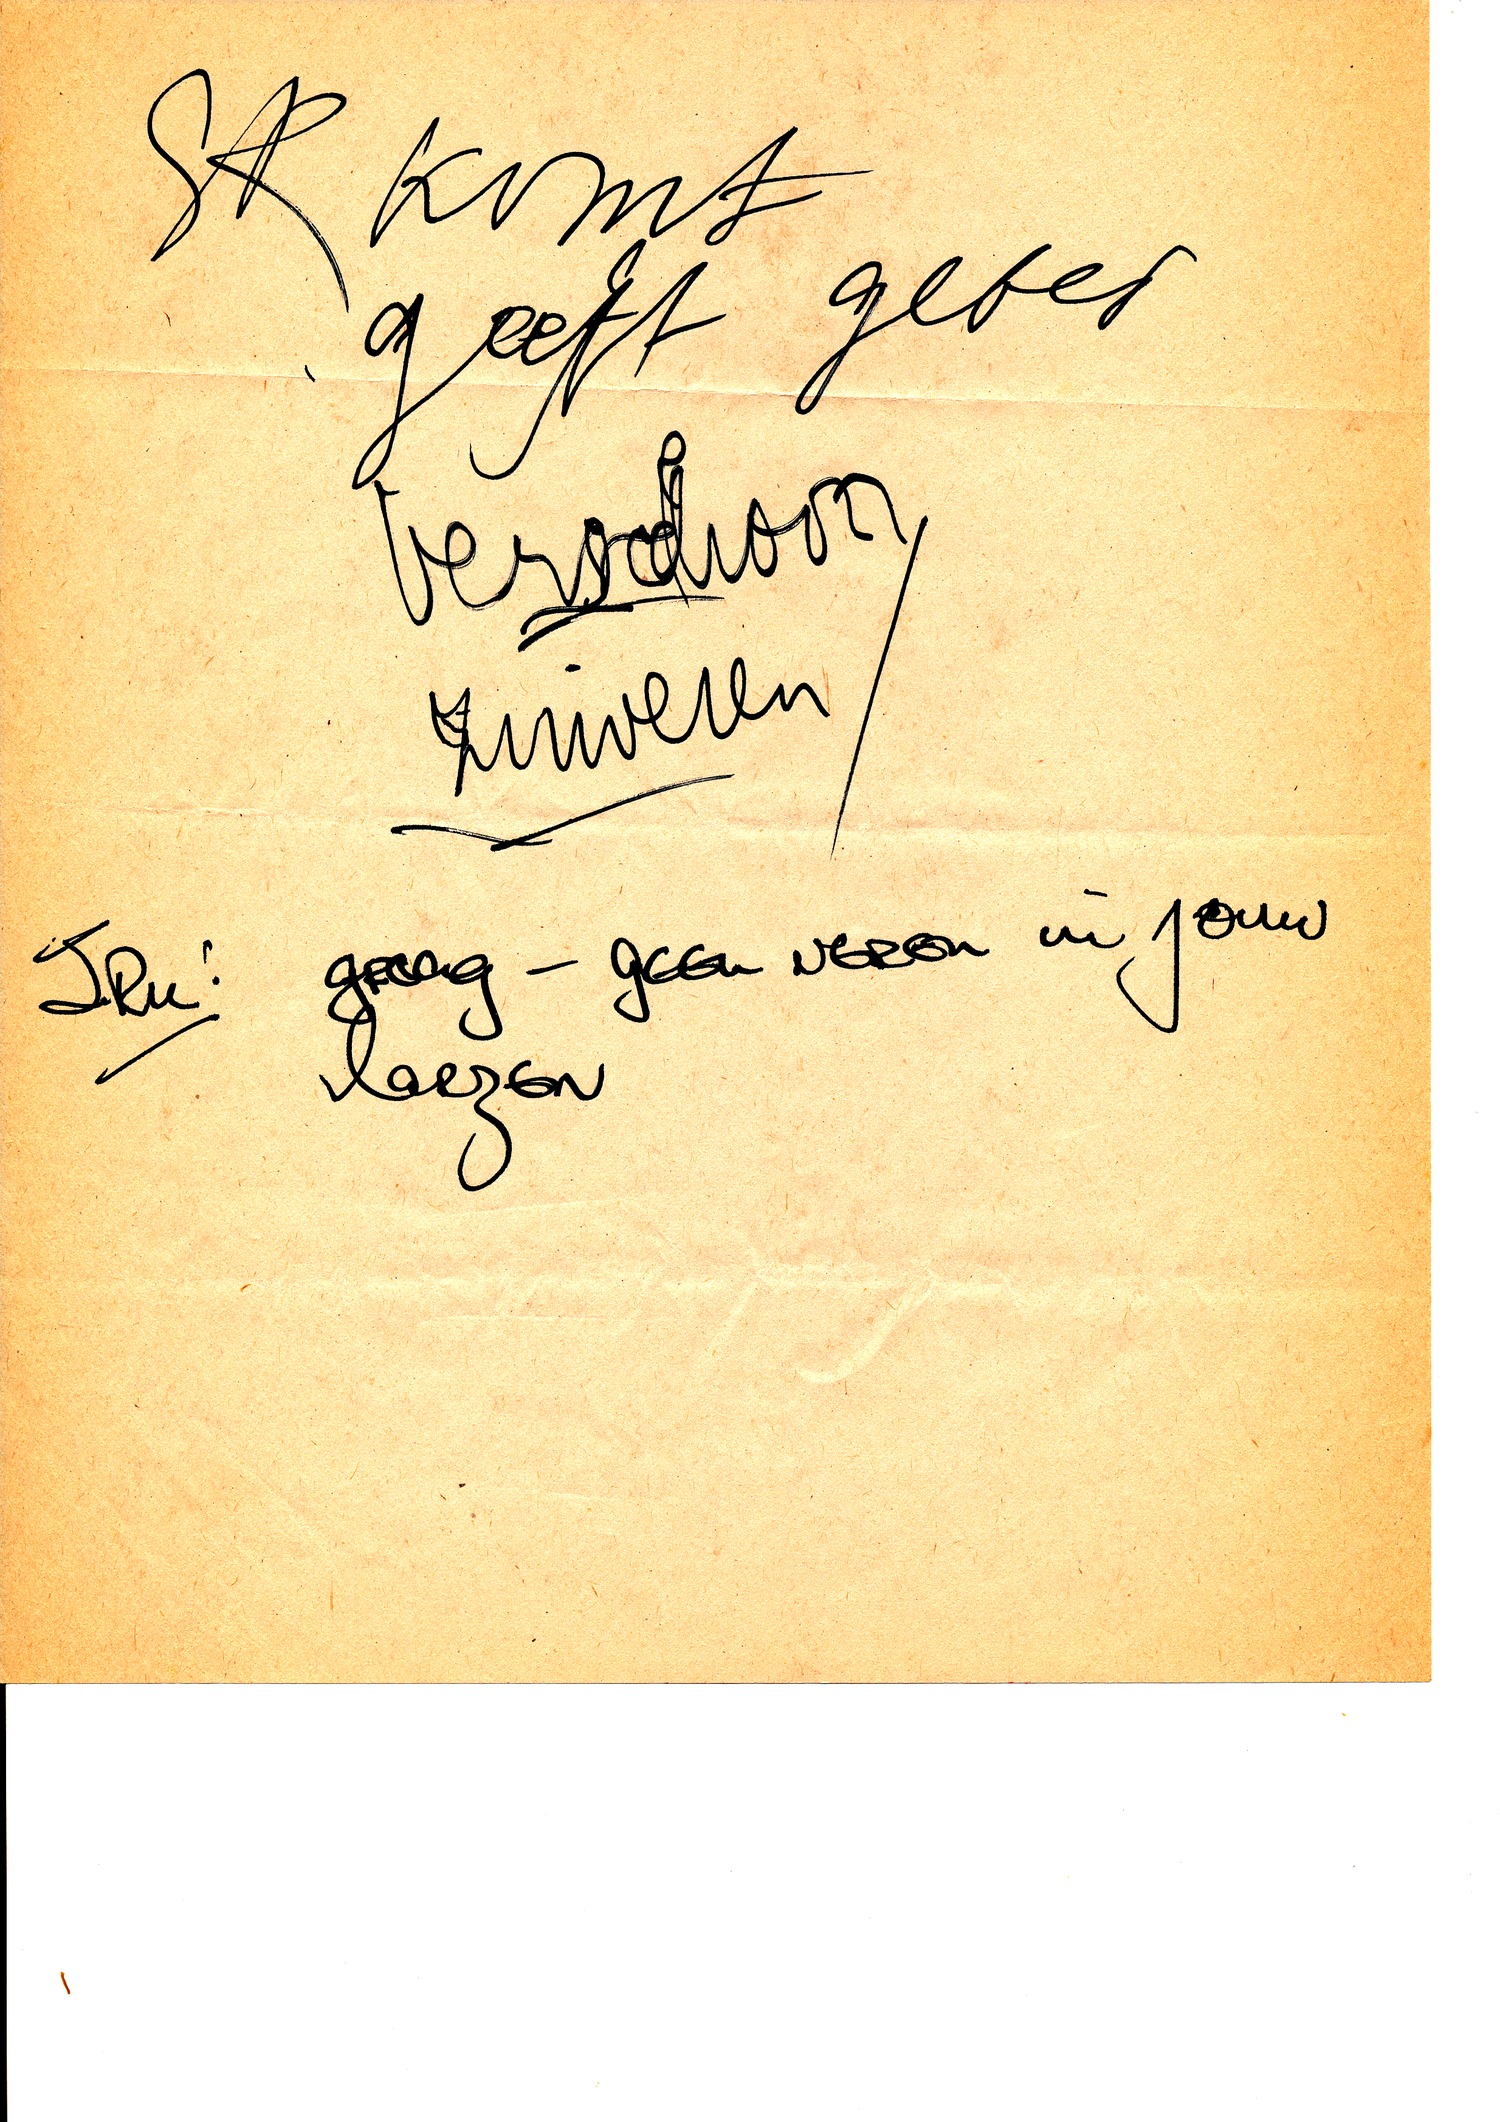 SR komt
geeft geber
verschoon
zuiveren
JRu: graag – geen veren in jouw
laarzen